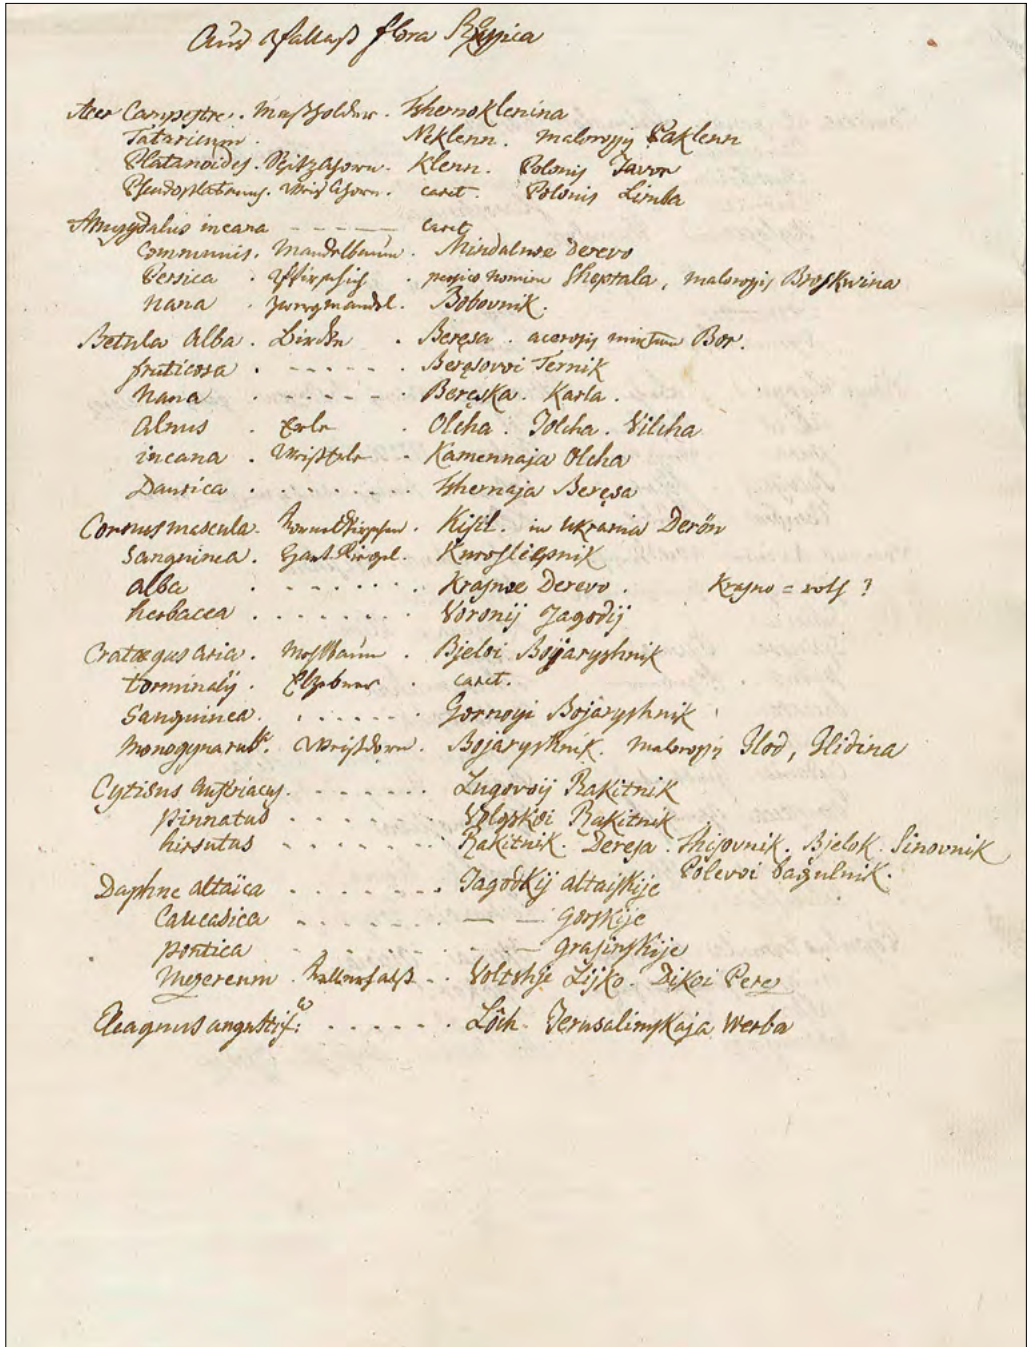 Aus Pallass flora Rossica
Acer Campestre. Massholder. Tshernoklenina
Tataricum. Neklenn. malorossis Paklenn
Platanoides. Spitzahorn. Klenn. Polonis Javor
Pseudoplatanus. Weis Ahorn. caret. Polonis Limba
Amygdalus incana ------ caret
Communis. Mandelbaum. Mindalnoe Derevo
Persica . Pfirsich . persico nomine Sheptala, malorossis Broskwina
nana . Zwergmandel. Bobovnik.
Betula Alba. Birke . Beresa. mixtum Bor.
fruticosa . ----- . Beresovoi Ternik
Nana . ------ . Bereska. Karla.
Alnus . Erle . Olcha. Jolcha. Vilcha
incana . Weisserle . Kamennaja Olcha
Daurica . . . . . . . . Tshernaja Beresa
Cornus mascula. Kornelkirschen. Kisil. in Ukrania Derön
Sanguinea. Hart Riegel. Kuroslepnik
alba . . . . . . . Krasnoe Derevo. Krasno = roth ?
herbacea . . . . . . . . Voronij Jagodij
Cratægus aria. Mehlbaum . Bjeloi Bojaryshnik
torminalis. Elzebeer . caret.
Sanguinea. . . . . . . Gornoyi Bojaryshnik
Monogyna rubr. Weissdorn. Bojaryshnik. malorossis Glod, Glidina
Cytisus Austriacus. . . . . . . Lugovoij Rakitnik
pinnatus . . . . . . Volgskoi Rakitnik
hirsutus . . . . . . . Rakitnik. Deresa. Shisovnik. Bjelok. Sinovnik
Polevoi bagulnik.
Daphne altaïca . . . . . . . Jagodkij altaiskije
Caucasica . . . . . . . — — Gorskije
pontica . . . . . . . — Grusinskije
Mezereum. Kellerhals . . Voltshje Lijko. Dikoi Perez
Eleagnus angustif: . . . . . . Loch. Jerusalimskaja Werba